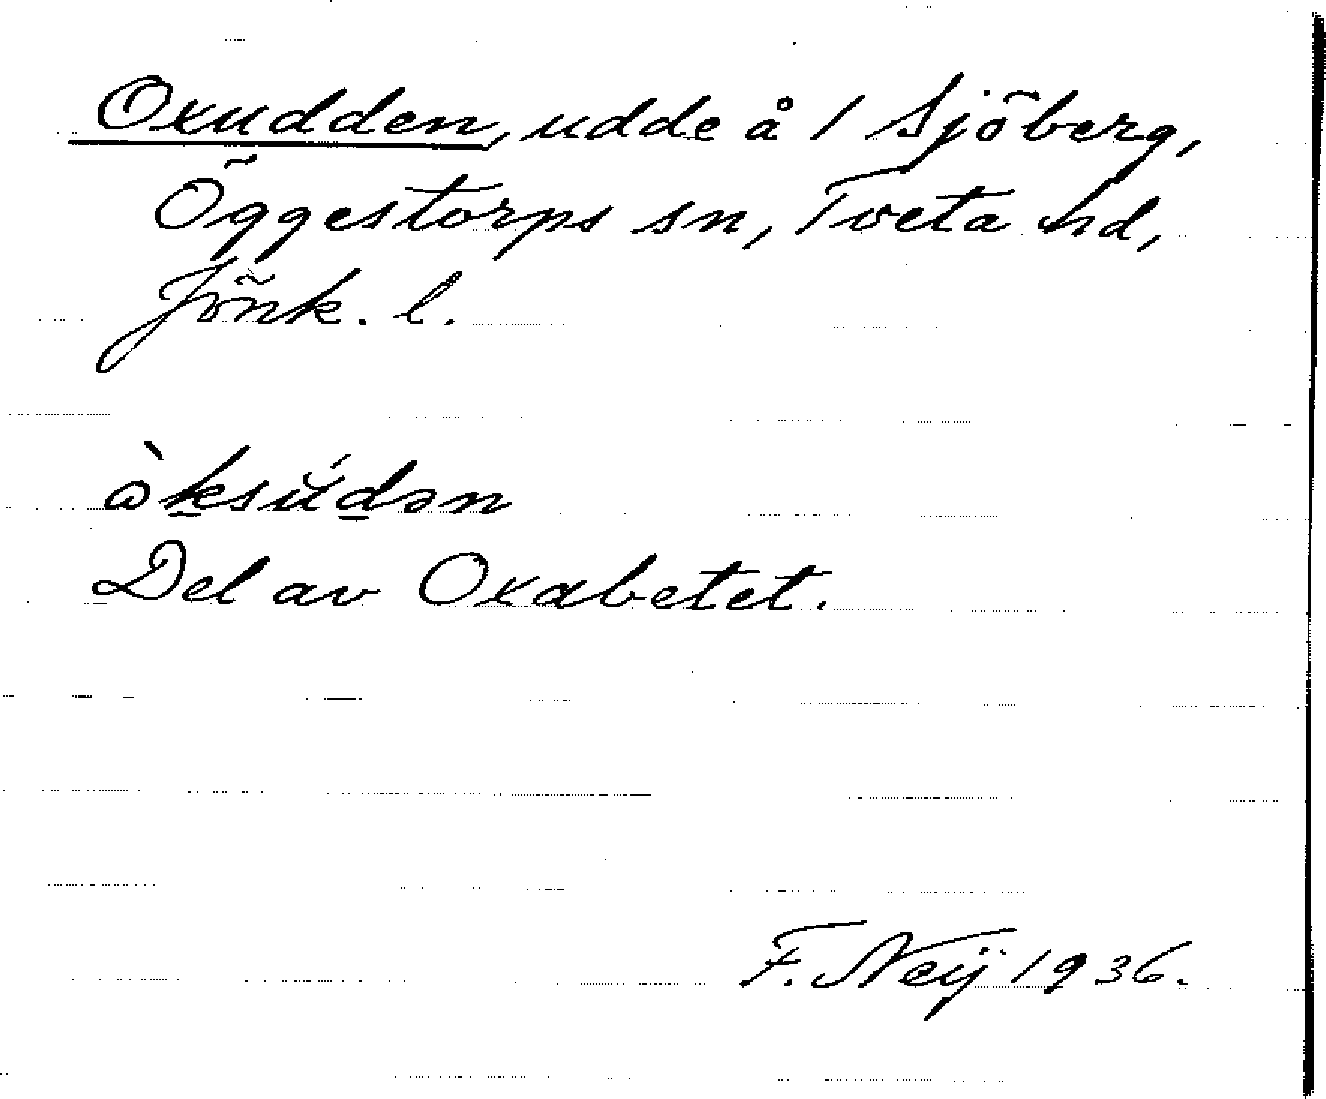 Oxudden, udde å 1 Sjöberg,
Öggestorps sn, Tveta hd,
Jönk. l.
ɷ̀k̲sŭ́d̲ən
Del av Oxabetet.
F. Neij 1936.